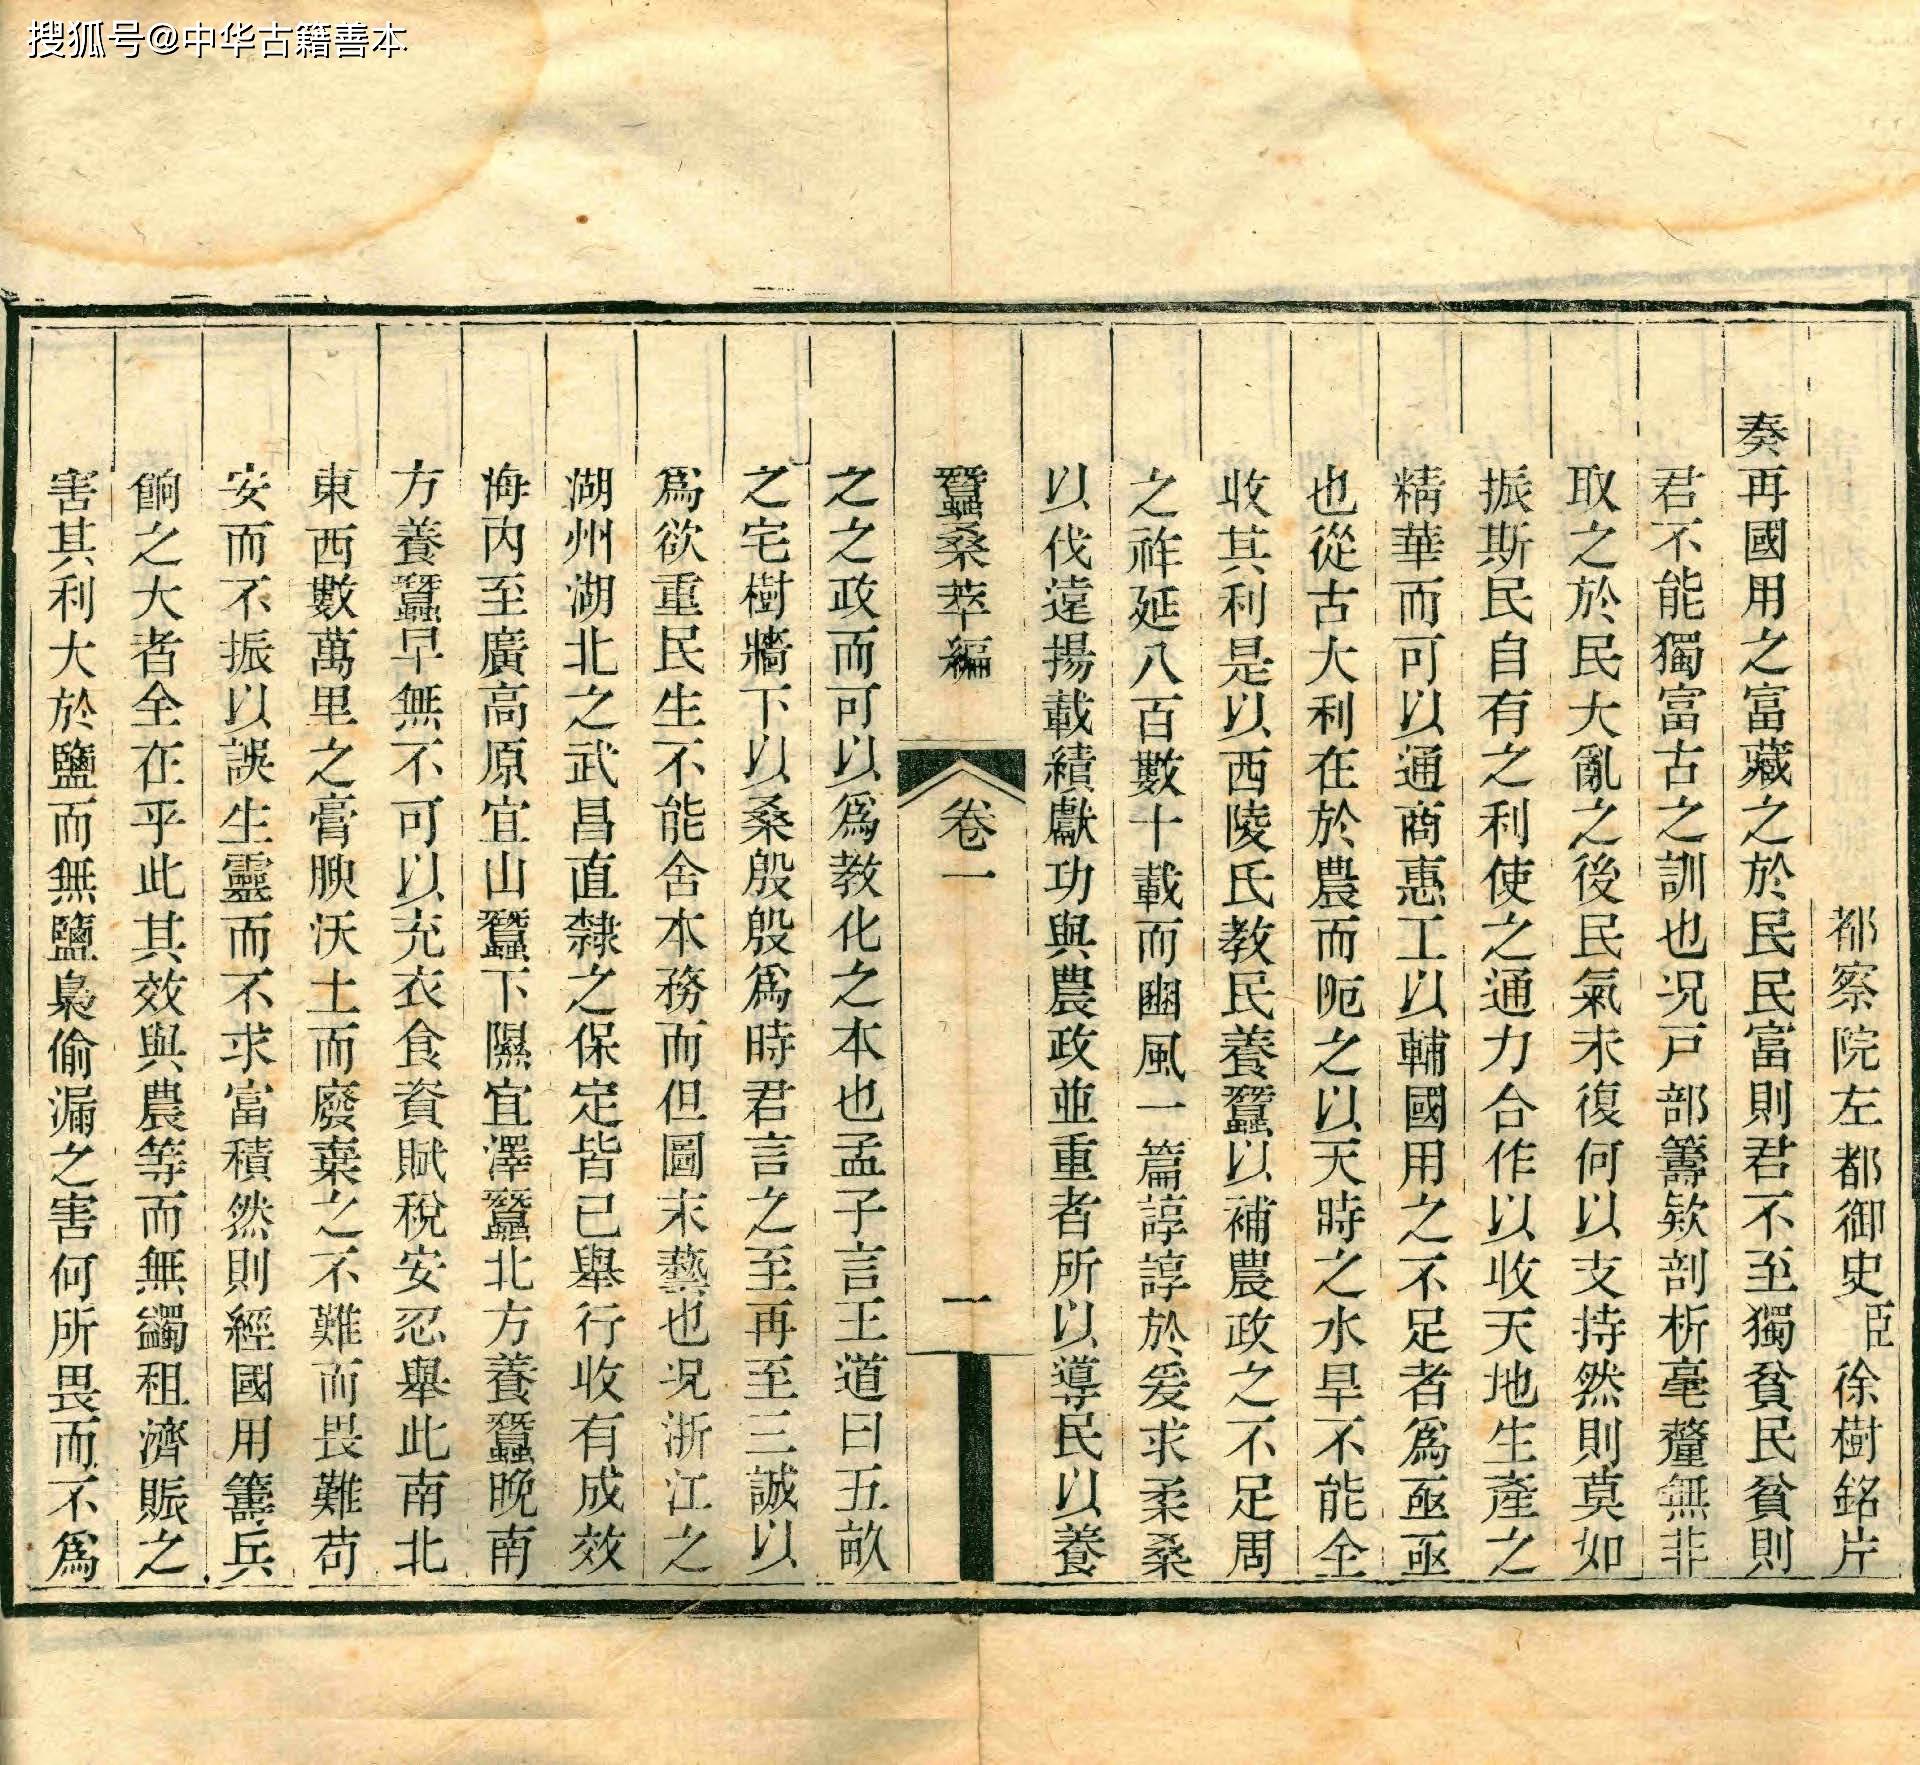 搜狐号@中华古籍善本
都察院左都御史臣徐樹銘片
奏再國用之富藏之於民民富則君不至獨貧民貧則
君不能獨富古之訓也況戸部籌欵剖析毫釐無非
取之於民大亂之後民氣未復何以支持然則莫如
振斯民自有之利使之通力合作以收天地生產之
精華而可以通商惠工以輔國用之不足者爲亟亟
也從古大利在於農而阨之以天時之水旱不能全
收其利是以西陵氏教民養蠶以補農政之不足周
之祚延八百數十載而豳風一篇諄諄於爰求柔桑
以伐遠揚載績獻功與農政並重者所以導民以養
蠶桑萃編
卷一
一
之之政而可以爲教化之本也孟子言王道曰五畝
之宅樹牆下以桑殷殷爲時君言之至再至三誠以
爲欲重民生不能舍本務而但圖末藝也況浙江之
湖州湖北之武昌直隸之保定皆已舉行收有成效
海內至廣高原宜山蠶下隰宜澤蠶北方養蠶晚南
方養蠶早無不可以充衣食資賦稅安忍舉此南北
東西數萬里之膏腴沃土而廢棄之不難而畏難苟
安而不振以誤生靈而不求富積然則經國用籌兵
餉之大者全在乎此其效與農等而無蠲租濟賑之
害其利大於鹽而無鹽梟偷漏之害何所畏而不爲